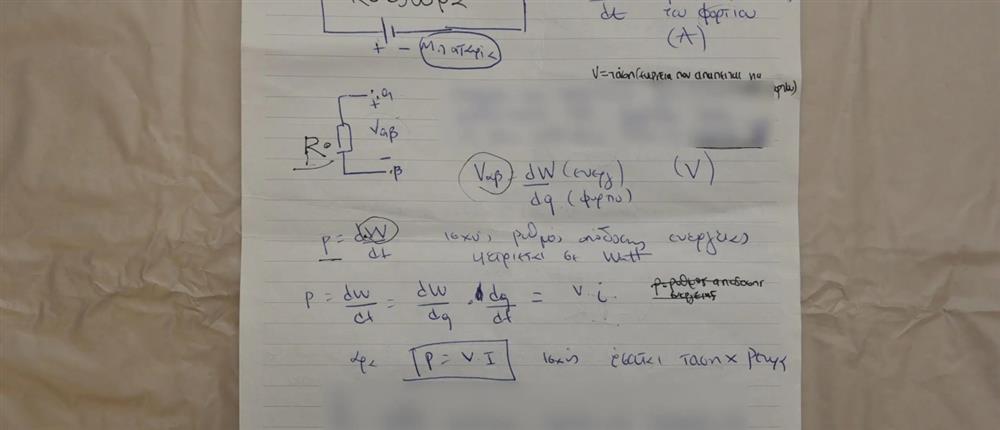 dt του φορτίου
(A)
+ - Μπαταρία
V=τάση(ενέργεια που απαιτείται να
+ α
Vαβ
R
- .β
Vαβ = dW (ενεργ) (V)
dq (φορτιο)
P = dW ισχύς ρυθμός απόδοσης ενέργειας
dt μετριέται σε Watt
P = dW = dW . dq = V . i.
dt dq dt
P=ρυθμος αποδοσης
ενεργειας
αρα P = V.I ισχύς ταση x ρευμα